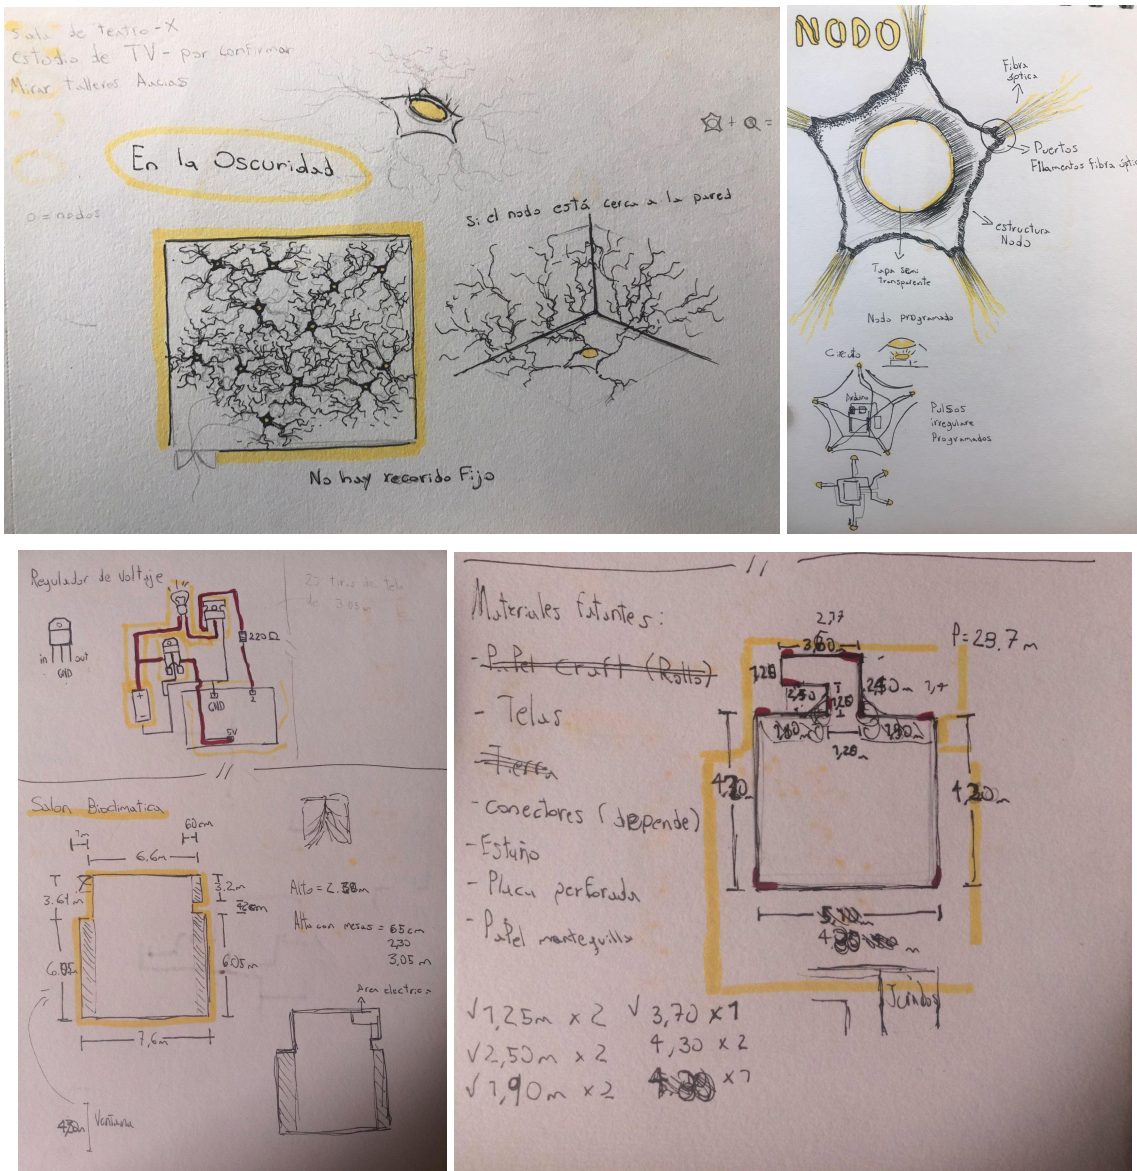 Sala de teatro - X
estudio de TV - por confirmar
Mirar talleros
En la Oscuridad
o = nodos
Si el nodo está cerca a la pared
No hay recorido Fijo
+ =
NODO
Fibra
óptica
Puertos
Filamentos fibra óptic
estructura
Nodo
Tapa semi
transparente
Nodo programado
Circuito
Arduino
Pulsos
irregulare
Programados
Regulador de voltaje
in
out
GND
+
-
220Ω
GND
2
5V
de 3.05
Salon Bioclimatica
1m
60cm
6,6m
3.61m
3,2m
6.05m
7,6m
Alto =
Alto con mesas = 65cm
2,30
3,05m
Area electrica
Ventana
Materiales Fatantes:
- Papel Craft (Rollo)
- Telas
- Tierra
- conectores (depende)
- Estaño
- Placa perforada
- Papel mantequilla
P = 23.7 m
1,25
1,25
4,20m
√ 1,25m x 2
√ 3,70 x 1
√ 2,50m x 2
4,30 x 2
√ 1,90m x 2
x 1
Jurados